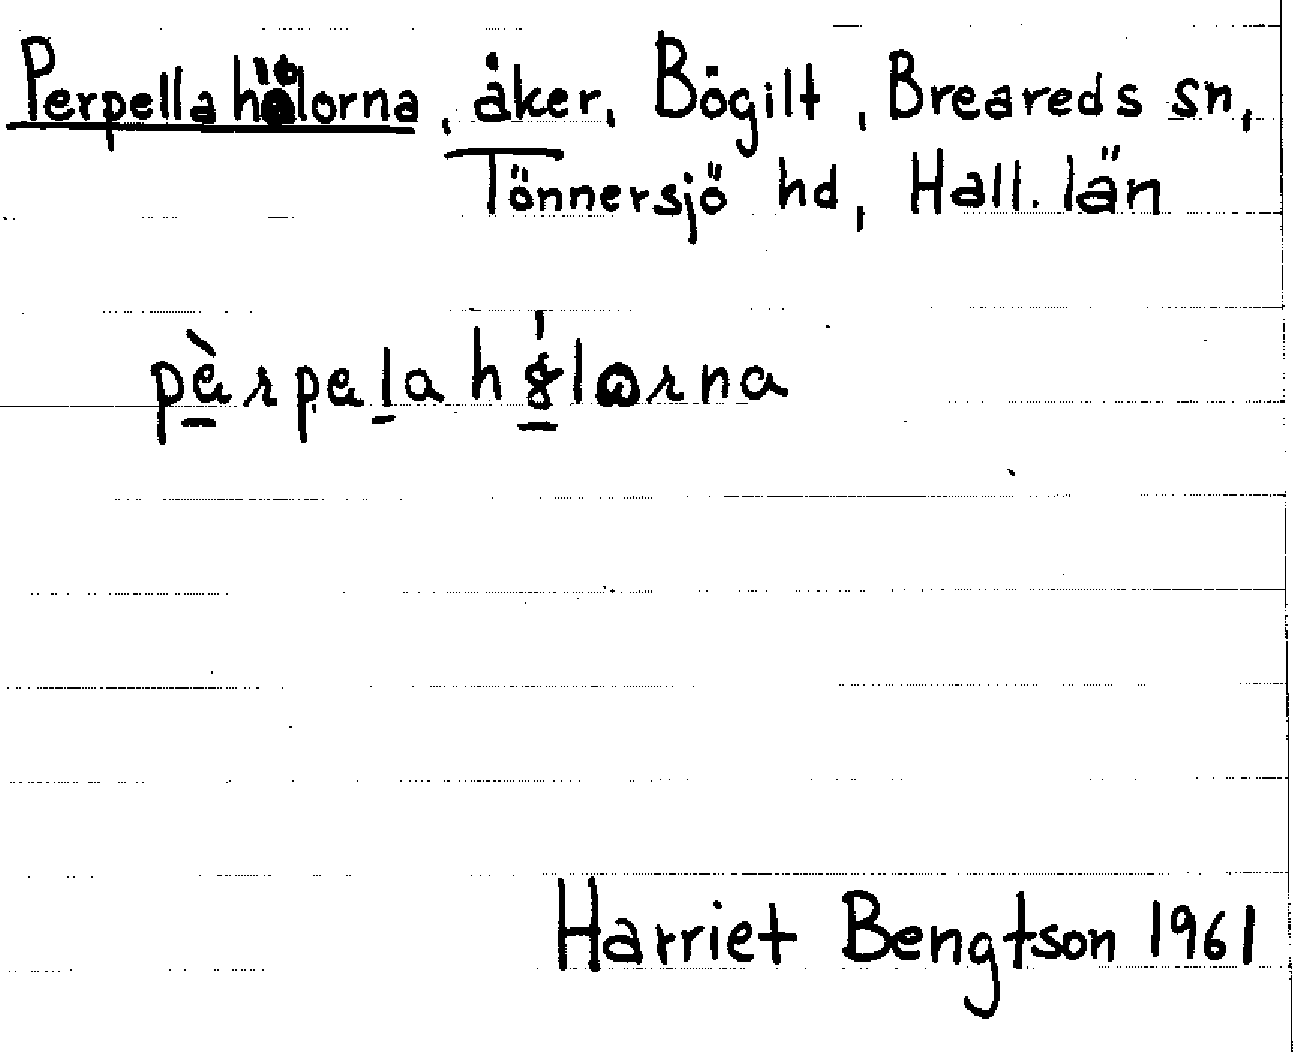 Perpellahölorna, åker, Bögilt, Breareds sn,
Tönnersjö hd, Hall. län
Harriet Bengtson 1961